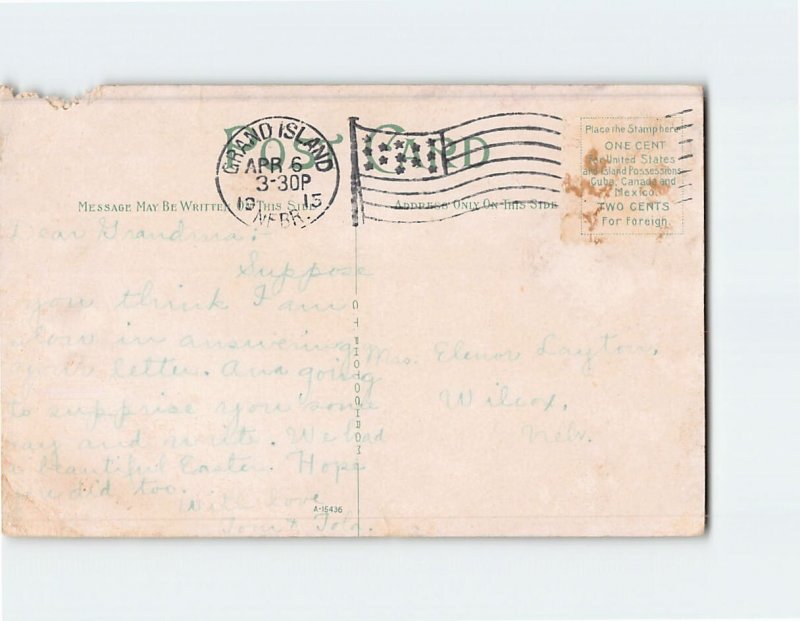 POST CARD
GRAND ISLAND
APR 6
3-30P
1915
NEBR.
Place the Stamp here
ONE CENT
United States
and Island Possessions
Cuba, Canada and
Mexico.
TWO CENTS
For Foreign.
MESSAGE MAY BE WRITTEN ON THIS SIDE
ADDRESS ONLY ON THIS SIDE
Dear Grandma:
Suppose
you think I am
slow in answering
your letter. Am going
to surprise you some
day and write. We had
a beautiful Easter. Hope
you did too.
With love
C T PHOTOCHROM
A-15436
Mrs. Elenor Layton,
Wilcox,
Nebr.